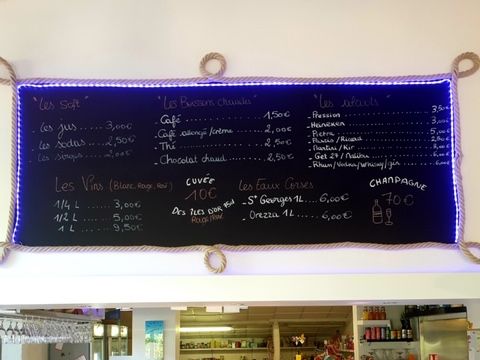 "Les Soft"
Les jus ...... 3,00€
Les sodas ...... 2,50€
Les sirops ..... 2,00€
"Les Boissons chaudes"
Café ............ 1,50€
Café allongé/crème ... 2,00€
Thé ............. 2,50€
Chocolat chaud ...... 2,50€
"Les alcools"
Pression ........ 3,50€
Heineken
Pietra ........ 5,00€
Pastis/Ricard
Martini/Kir
Get 27/Malibu
Rhum/Vodka/Whisky/gin
Les Vins (Blanc, Rouge, Rosé)
1/4 L ...... 3,00€
1/2 L ...... 5,00€
1 L ...... 9,50€
CUVÉE
10€
DES ÎLES D'OR 75cl
Rouge/Rosé
Les Eaux Corses
St Georges 1L .... 6,00€
Orezza 1L ...... 6,00€
CHAMPAGNE
70€